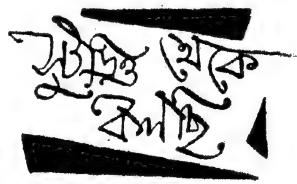 স্টুডিও থেকে
বলছি